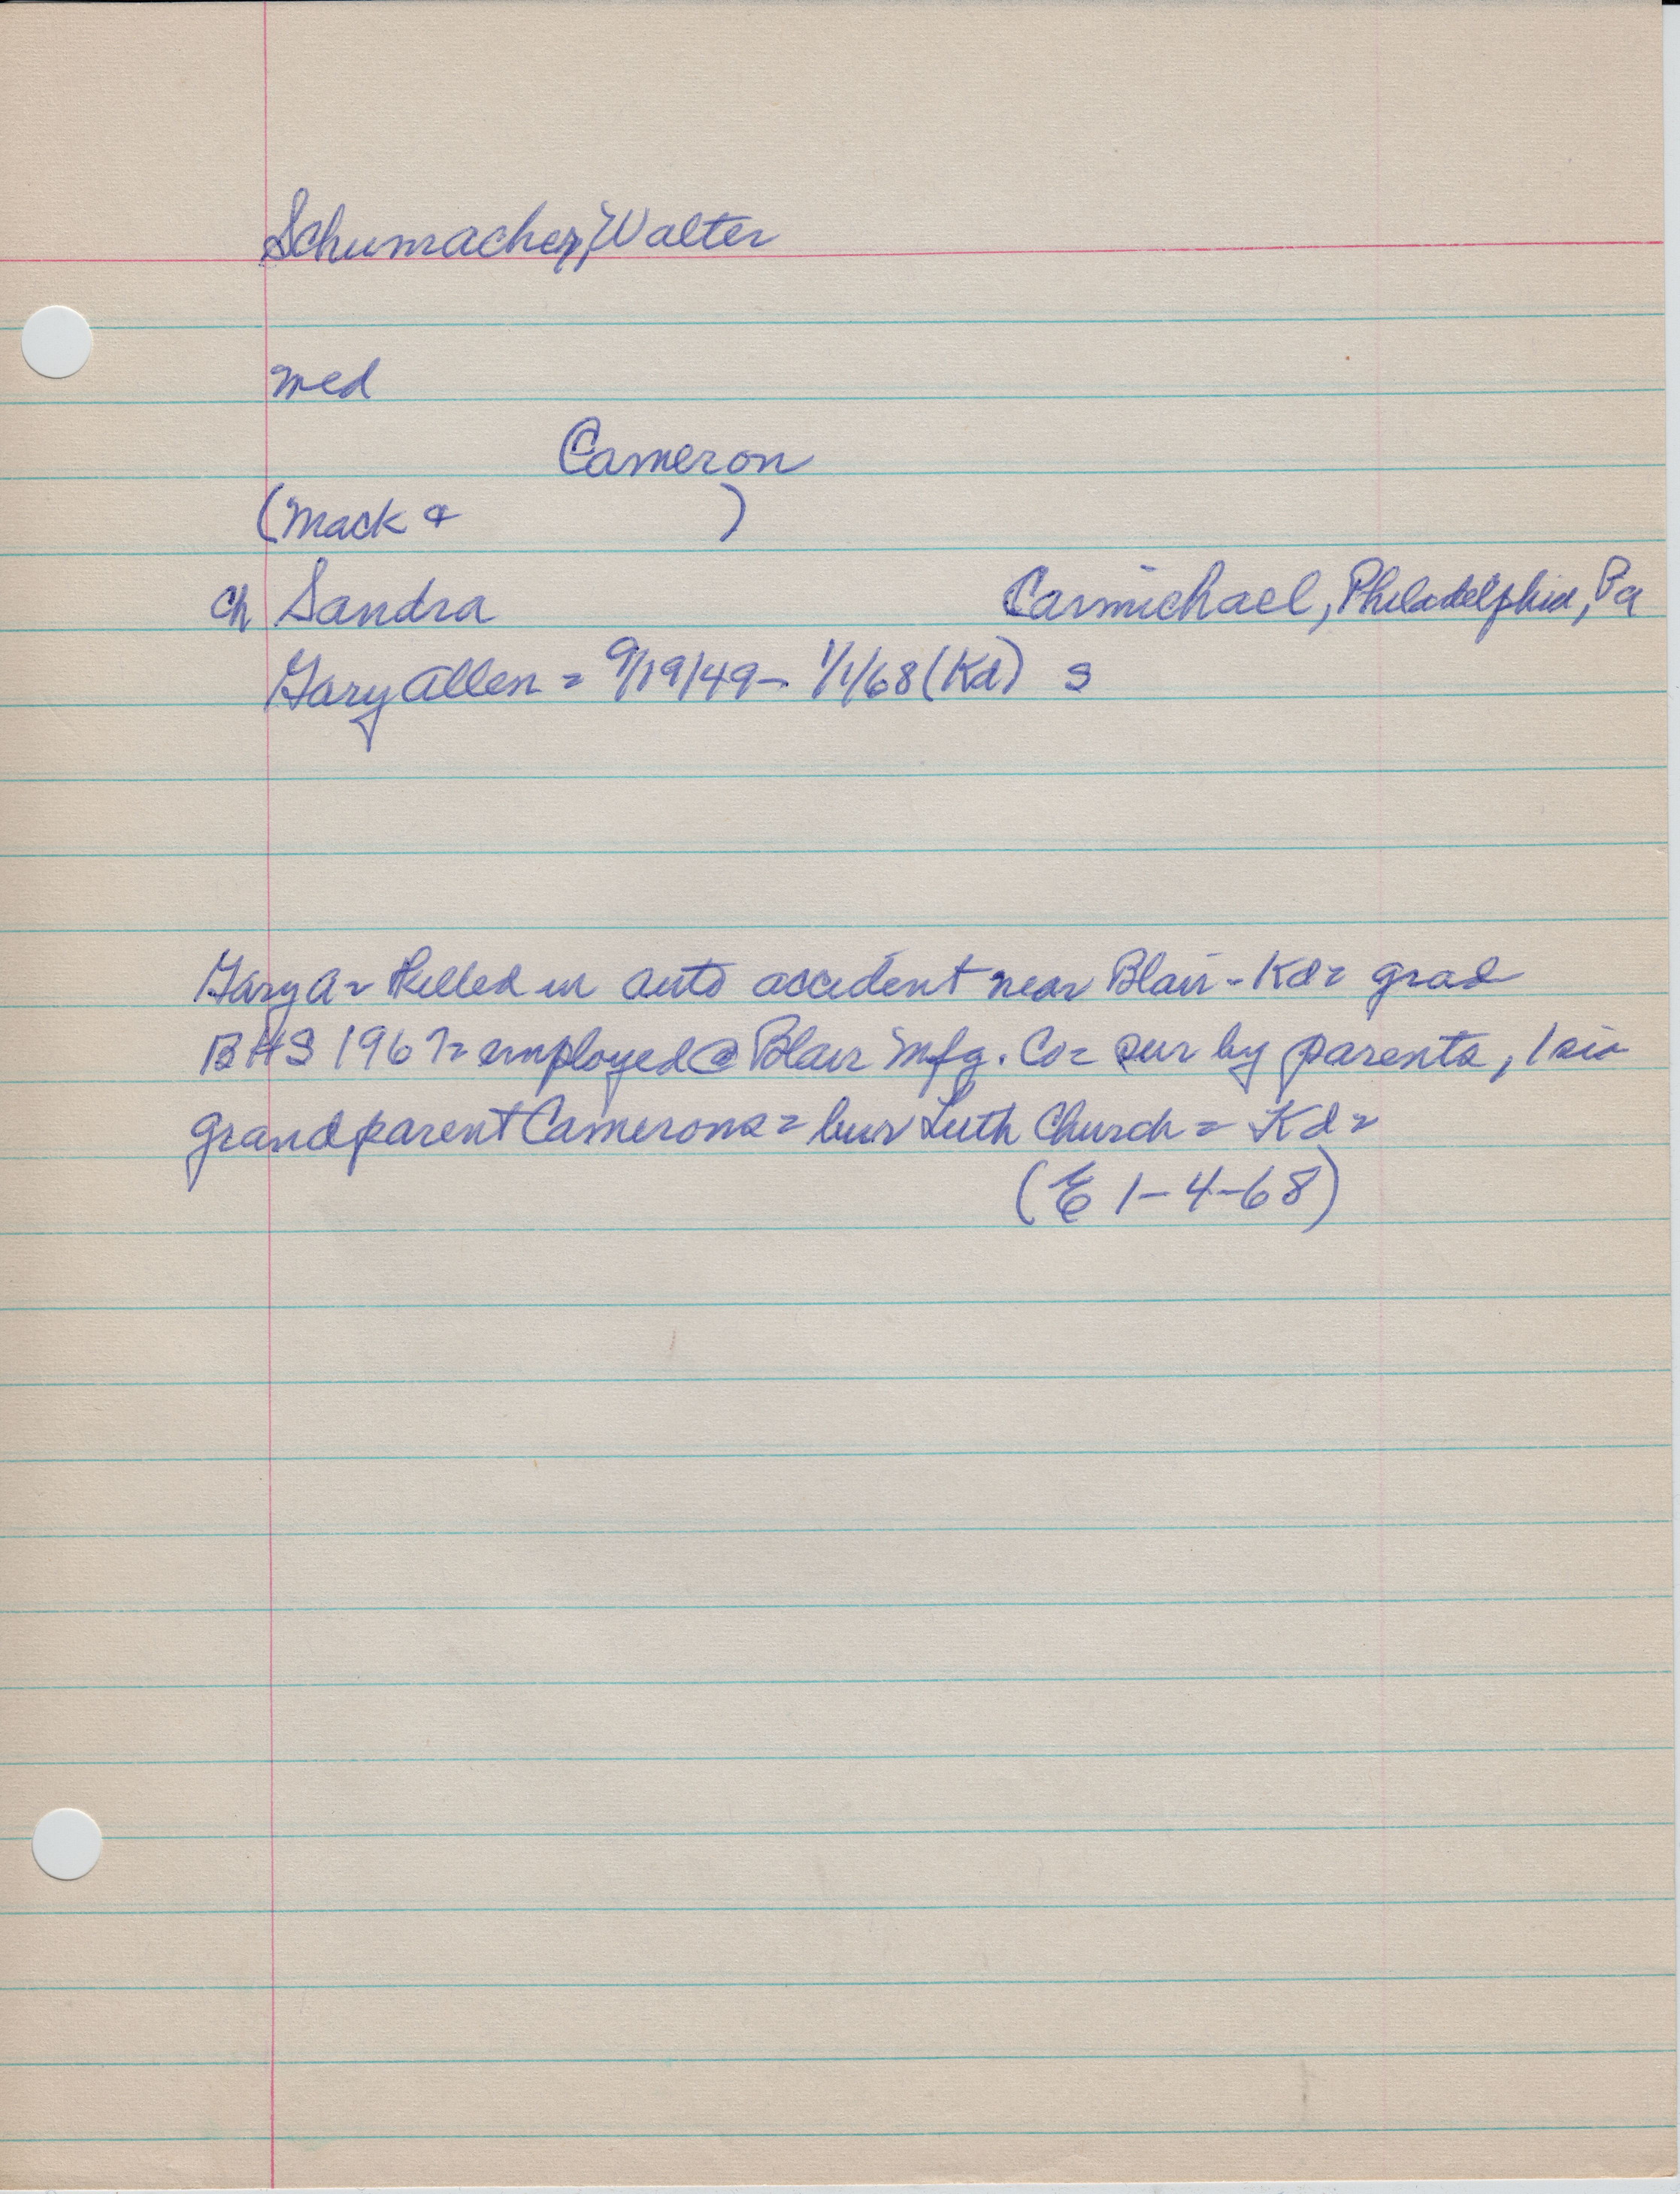 Schumacher, Walter
med
Cameron
(Mack & )
ch Sandra Carmichael, Philadelphia, Pa
Gary Allen = 9/19/49 - 1/1/68 (Kd) s
Gary A = Killed in auto accident near Blair - Kd = grad
BHS 1967 = employed @ Blair Mfg. Co = sur by parents, 1 sis
grandparent Camerons = bur Luth Church = Kd =
(E 1-4-68)